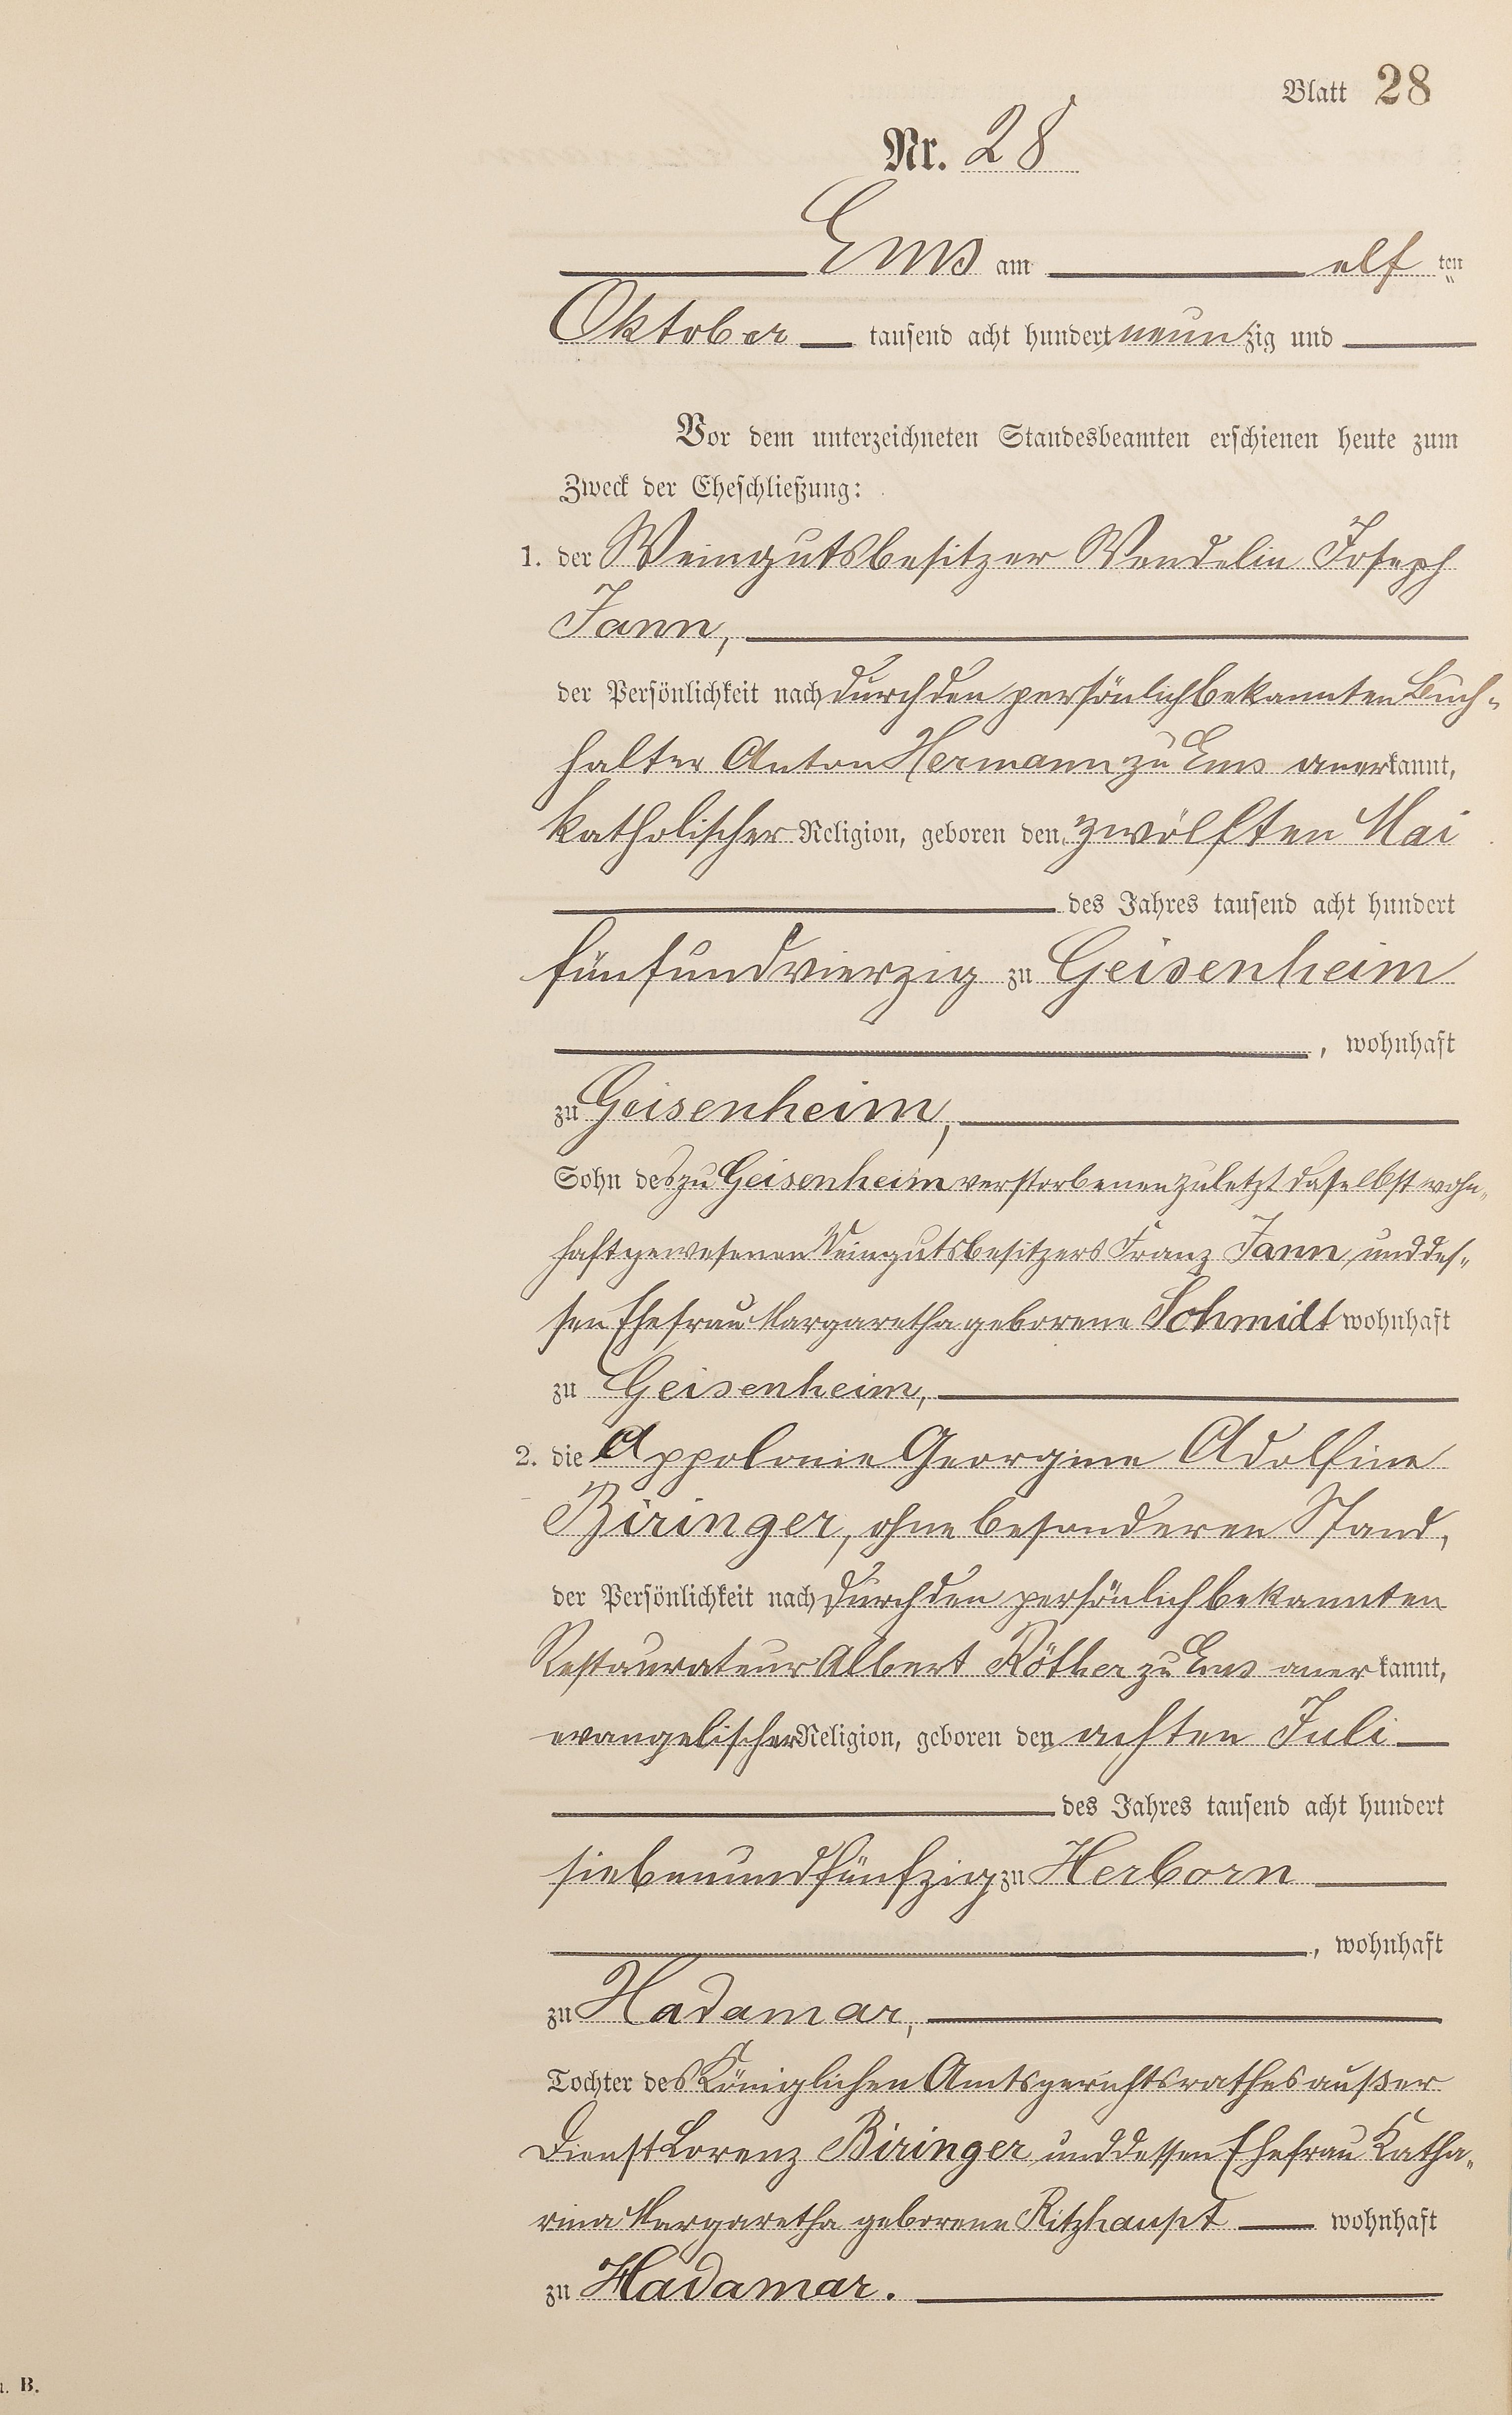 Blatt 28
Nr. 28
Ems am elf ten
Oktober tausend acht hundert neun zig und
Vor dem unterzeichneten Standesbeamten erschienen heute zum
Zweck der Eheschließung:
1. der Weingutsbesitzer Wendelin Joseph
Jann,
der Persönlichkeit nach durch den persönlich bekannten Buch-
halter Anton Hermann zu Ems anerkannt,
katholischer Religion, geboren den zwölften Mai
des Jahres tausend acht hundert
fünfundvierzig zu Geisenheim
, wohnhaft
zu Geisenheim,
Sohn des zu Geisenheim verstorbenen zuletzt daselbst wohn-
haft gewesenen Weingutsbesitzers Franz Jann, und des-
sen Ehefrau Margaretha geborene Schmidt wohnhaft
zu Geisenheim,
2. die Appolonie Georgine Adolfine
Biringer, ohne besonderen Stand,
der Persönlichkeit nach durch den persönlich bekannten
Restaurateur Albert Röther zu Ems anerkannt,
evangelischer Religion, geboren den achten Juli
des Jahres tausend acht hundert
siebenundfünfzig zu Herborn
, wohnhaft
zu Hadamar,
Tochter des Königlichen Amtsgerichtsrathes außer
Dienst Lorenz Biringer und dessen Ehefrau Katha-
rina Margaretha geborene Ritzhaupt wohnhaft
zu Hadamar.
B.